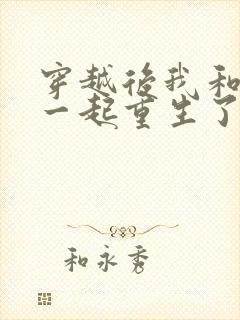 穿越后我和
一起重生了
和永秀